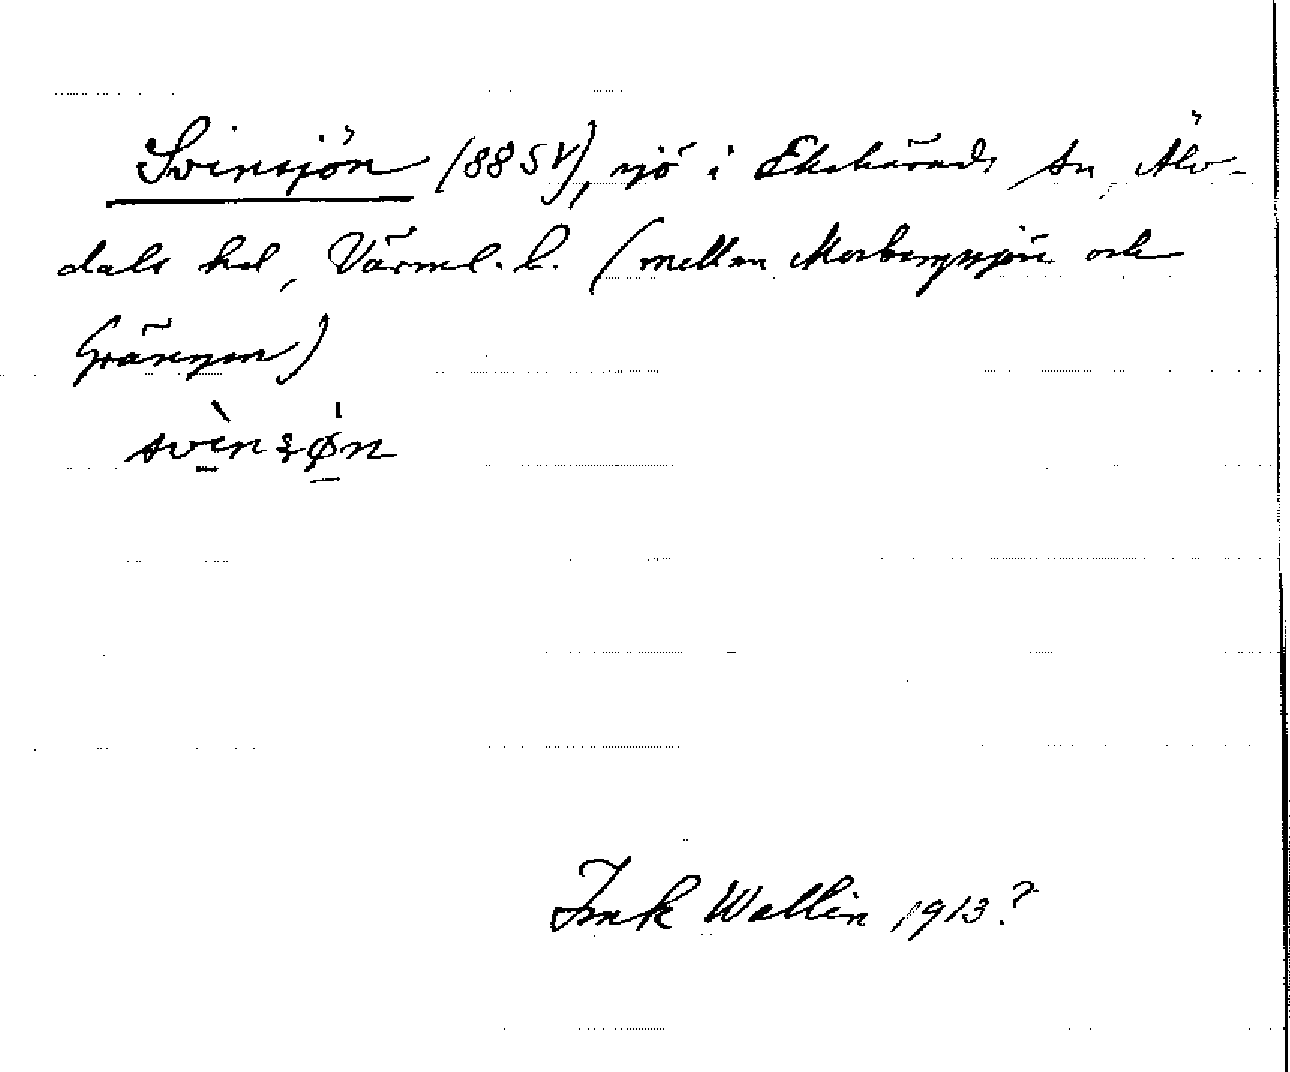 Svinsjön (88 SV), sjö i Ekshärads sn, Älv-
dals hd, Värml. l. (mellan Mosbergssjön och
Grängen)
svìnʂø̀n
Wallin 1913?